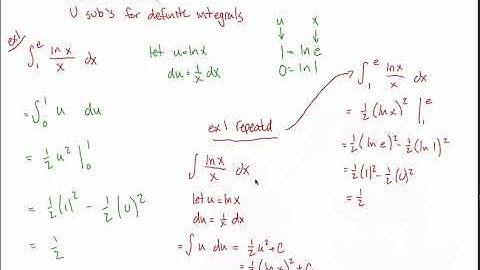 U sub's for definite integrals
ex1
∫₁ᵉ ln x / x dx
let u = ln x
du = 1/x dx
u x
1 = ln e
0 = ln 1
= ∫₀¹ u du
= 1/2 u² |₀¹
= 1/2 (1)² - 1/2 (0)²
= 1/2
ex 1 repeatd
∫ ln x / x dx
let u = ln x
du = 1/x dx
= ∫ u du = 1/2 u² + C
= 1/2 (ln x)² + C
∫₁ᵉ ln x / x dx
= 1/2 (ln x)² |₁ᵉ
= 1/2 (ln e)² - 1/2 (ln 1)²
= 1/2 (1)² - 1/2 (0)²
= 1/2